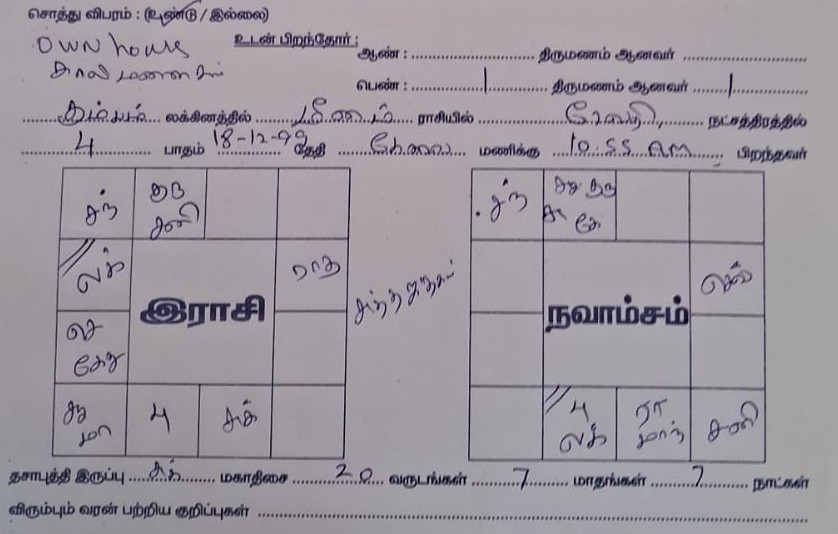 சொத்து விபரம் : (உண்டு / இல்லை)
own house
உடன் பிறந்தோர் : ஆண் : .................... திருமணம் ஆனவர் ....................
காலி மனை
பெண் : ........1........ திருமணம் ஆனவர் ........1........
கும்பம் லக்கினத்தில் மீனம் ராசியில் ரேவதி நட்சத்திரத்தில்
4 பாதம் 18-12-99 தேதி காலை மணிக்கு 10.55 AM பிறந்தவர்
சந் குரு சனி
லக் ராகு
இராசி
செ கேது
சூ மா பு சுக்
சந் சூ குரு சு கே
செவ்
நவாம்சம்
பு லக் ரா மாந் சனி
தசாபுத்தி இருப்பு சுக் மகாதிசை 20 வருடங்கள் 7 மாதங்கள் 7 நாட்கள்
விரும்பும் வரன் பற்றிய குறிப்புகள் ....................